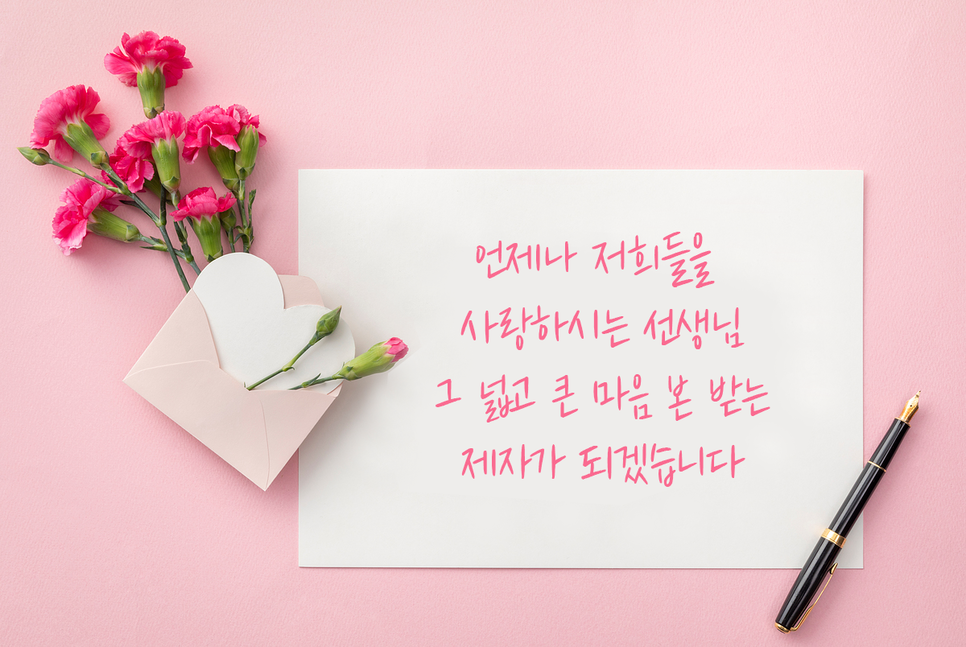 언제나 저희들을
사랑하시는 선생님
그 넓고 큰 마음 본 받는
제자가 되겠습니다